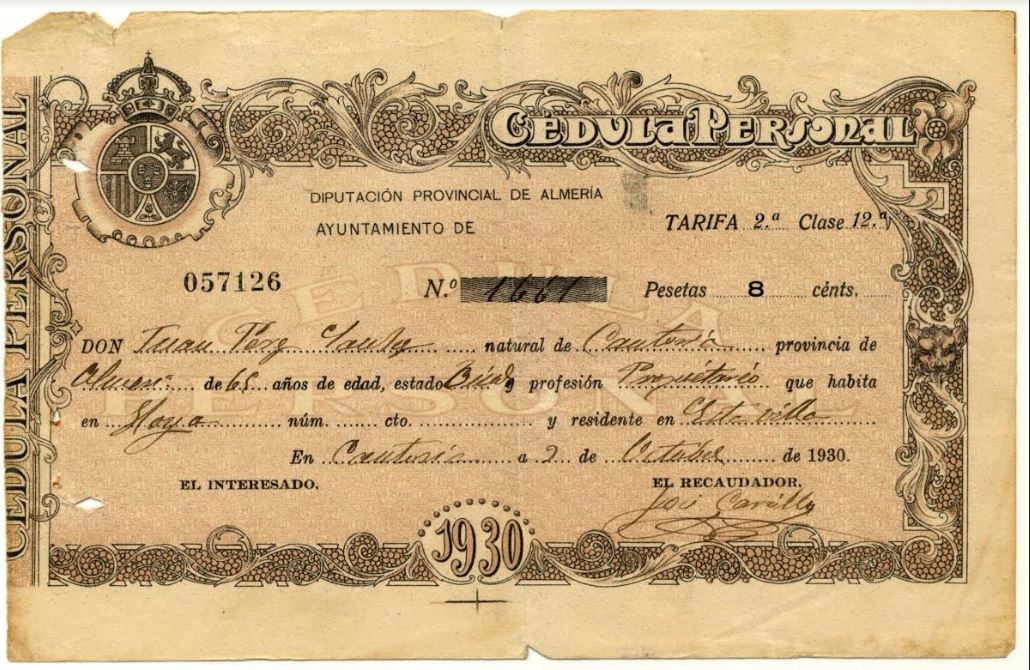 CÉDULA PERSONAL
CÉDULA PERSONAL
DIPUTACIÓN PROVINCIAL DE ALMERÍA
AYUNTAMIENTO DE
TARIFA 2.ª Clase 12.ª
057126
N.º 1661 Pesetas 8 cénts.
CEDULA
PERSONAL
DON Juan Pérez natural de Cantoria provincia de
de 65 años de edad, estado profesión Propietario que habita
en Hoya núm. cto. y residente en Esta villa
En Cantoria a 2 de Octubre de 1930.
EL INTERESADO, EL RECAUDADOR,
José
1930